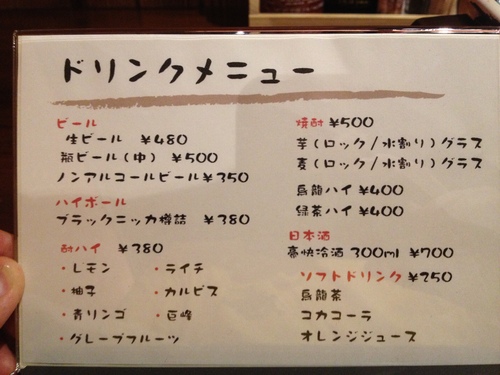 ドリンクメニュー
ビール
生ビール ¥480
瓶ビール(中) ¥500
ノンアルコールビール¥350
ハイボール
ブラックニッカ樽詰 ¥380
酎ハイ ¥380
・レモン ・ライチ
・柚子 ・カルピス
・青リンゴ ・巨峰
・グレープフルーツ
焼酎 ¥500
芋(ロック/水割り)グラス
麦(ロック/水割り)グラス
烏龍ハイ ¥400
緑茶ハイ ¥400
日本酒
豪快冷酒 300ml ¥700
ソフトドリンク ¥250
烏龍茶
コカコーラ
オレンジジュース